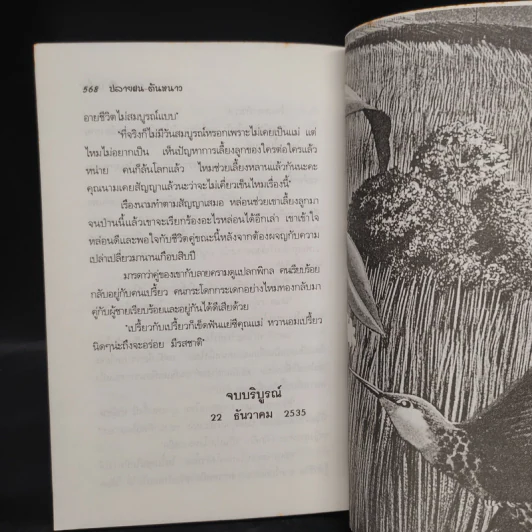 568 ปะวาฬสน-ต้นหนาว
อายชีวิตไม่สมบูรณ์แบบ"
"ที่จริงก็ไม่มีวันสมบูรณ์หรอกเพราะไม่เคยเป็นแม่ แต่
ไหมไม่อยากเป็น เห็นปัญหาการเลี้ยงลูกของใครต่อใครแล้ว
หน่าย คนก็ล้นโลกแล้ว ไหมช่วยเลี้ยงหลานแล้วกันนะคะ
คุณนามเคยสัญญาแล้วนะว่าจะไม่เคี่ยวเข็นไหมเรื่องนี้"
เรืองนามทำตามสัญญาเสมอ หล่อนช่วยเขาเลี้ยงลูกมา
จนป่านนี้แล้วเขาจะเรียกร้องอะไรหล่อนได้อีกเล่า เขาเข้าใจ
หล่อนดีและพอใจกับชีวิตคู่ขณะนี้หลังจากต้องผจญกับความ
เปล่าเปลี่ยวมานานเกือบสิบปี
มารดาว่าคู่ของเขากับลายครามดูแปลกพิกล คนเรียบร้อย
กลับอยู่กับคนเปรี้ยว คนกระโดกกระเดกอย่างไหมทองกลับมา
คู่กับผู้ชายเรียบร้อยและอยู่กันได้ดีเสียด้วย
"เปรี้ยวกับเปรี้ยวก็เข็ดฟันแย่ซีคุณแม่ หวานอมเปรี้ยว
นิดๆน่ะถึงจะอร่อย มีรสชาติ"
จบบริบูรณ์
22 ธันวาคม 2535